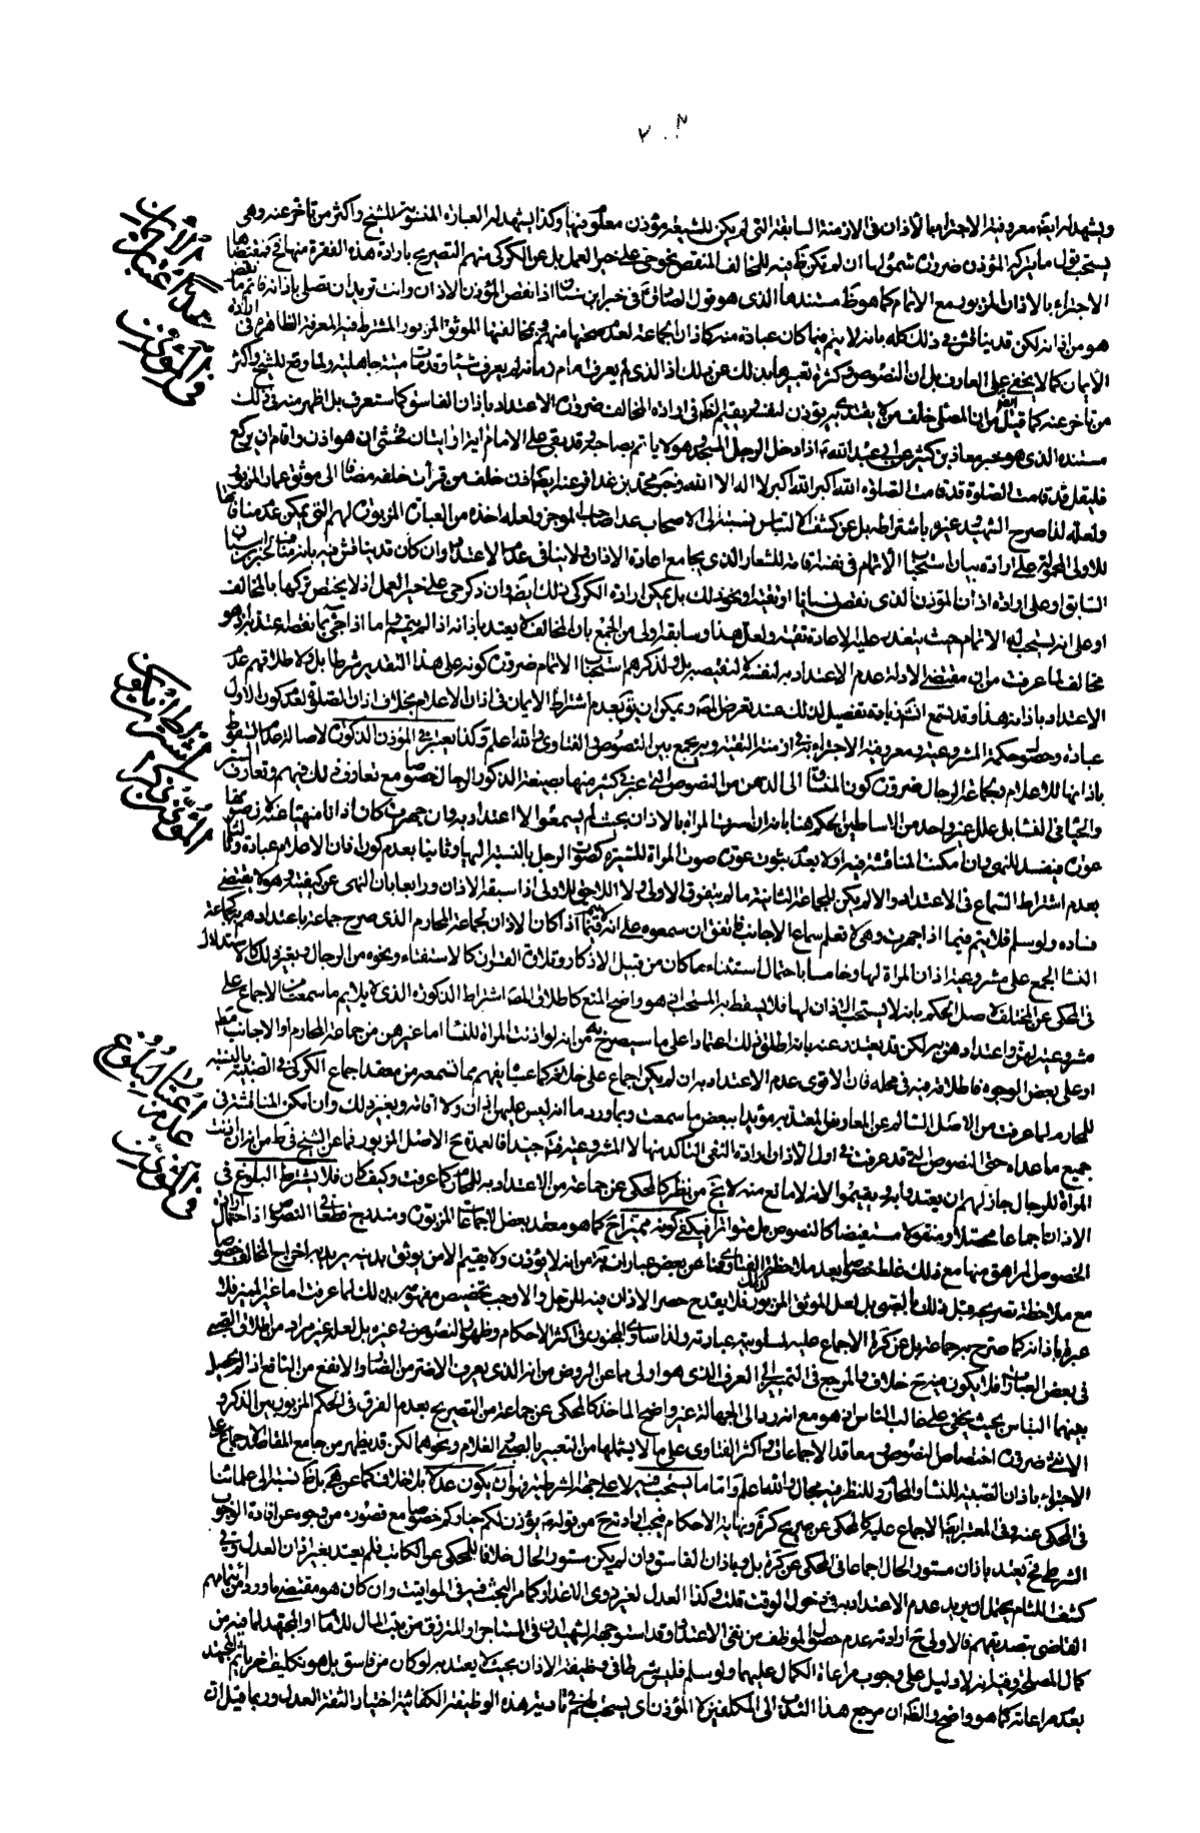 ٢٠٧
ويشهد له ايضا معروفية الاجتزاء بها لاذان في الازمنة السابقة التي لم يكن للشيعة مؤذن معلوم فيها وكذا يشهد له العبارة المنسوبة للشيخ واكثر من تاخر عنه وهى
يستحب قول ما يتركه المؤذن ضرورة شمولها ان لم يكن ظهيره للمخالف المنقص نحو حي على خير العمل بل عن الكركي منهم التصريح بارادة هذه الفقرة منها فمقتضاها
الاجتزاء بالاذان المزبور مع الاتمام كما هو ظ مستندها الذى هو قول الصادق في خبر ابن سنان اذا نقص المؤذن الاذان وانت تريد ان تصلى باذانه فاتم ما نقص
هو من اذانه لكن قد يناقش في ذلك كله بانه لا يتم فيما كان عبادة منه كاذان الجماعة لعدم صحتها منهم وبمخالفتها الموثق المزبور المشترط فيه المعرفة الظاهرة في ارادة
الايمان كما لا يخفى على العارف بلسان النصوص وكثرة تعبيرها بذلك عن ذلك اذ الذى لم يعرف امام زمانه لم يعرف شيئا وقد مات ميتة جاهلية ولما وقع للشيخ واكثر
من تاخر عنه كما قيل من ان المصلى خلف من لا يقتدى به يؤذن لنفسه ويقيم الظ في ارادة المخالف ضرورة الاعتداد باذان الفاسق كما ستعرف بل اظهر منه في ذلك
مستنده الذى هو خبر معاذ بن كثير عن ابي عبد الله ع اذا دخل الرجل المسجد وهو لا ياتم بصاحبه وقد بقى على الامام اية او ايتان فخشى ان هو اذن واقام ان يركع
فليقل قد قامت الصلوة قد قامت الصلوة الله اكبر الله اكبر لا اله الا الله وخبر محمد بن عذافر عنه ايضا اذن خلف من قرأت خلفه مضافا الى موثق عمار المزبور
ولعله لذا صرح الشهيد وغيره باشتراطه بل عن كشف الالتباس نسبته الى الاصحاب عدا صاحب الموجز ولعله اخذه من العبارة المزبورة لهم التى يمكن عدم منافاتها
للاولى المحمولة على ارادة بيان استحباب الاتمام في نفسه اقامة للشعار الذى يجامع اعادة الاذان ولا ينافى عدم الاعتداد وان كان قد يناقش فيه بانه مناف لخبر ابن سنان
السابق او على ارادة اذان المؤذن الذى نقص نسيانا او تقية او نحو ذلك بل يمكن ارادة الكركي ذلك ايضا وان ذكر حي على خير العمل اذ لا يختص تركها بالمخالف
او على انه يستحب له الاتمام حيث يتعذر عليه الاعادة تقية ولعل هذا وسابقه اولى من الجمع بان المخالف لا يعتد باذانه اذا لم يتمه واما اذا اجزى بما نقصه اعتد به اذ هو
مخالف لما عرفت من ان مقتضى الادلة عدم الاعتداد به لنفسه لا لتقصيره بل ولذكرهم استحباب الاتمام ضرورة كونه على هذا التقدير شرطا بل ولاطلاقهم عدم
الاعتداد باذانه هذا وقد تسمع انشاء الله زيادة تفصيل لذلك عند تعرض المص له ويمكن ان يق بعدم اشتراط الايمان في اذان الاعلام بخلاف اذان الصلوة لفقد كون الاول
عبادة وحصول حكمة المشروعية ومعروفية الاجتزاء به في ازمنة التقية وبه يجمع بين النصوص والفتاوى والله اعلم وكذا يعتبر في المؤذن الذكورة لاصالة عدم السقوط
باذانها للاعلام ولجماعة الرجال ضرورة كون المنساق الى الذهن من النصوص التي عبر في كثير منها بصيغة الذكور الرجال خصوصا مع تعارف ذلك فيهم وتعارف التستر
والحياء في النساء بل علل غير واحد من الاساطين الحكم هنا بانه ان اسرت المراة بالاذان بحيث لم يسمعوا لا اعتداد به وان جهرت كان اذانا منهيا عنه لان صوتها
عورة فيفسد للنهى وان امكنت المناقشة فيه اولا بعدم ثبوت عورة صوت المراة للسيرة كصوت الرجل بالنسبة اليها وثانيا بعدم كون اذان الاعلام عبادة وثالثا
بعدم اشتراط السماع في الاعتداد والا لم يكن للجماعة الثانية ما لم يتفرق الاولى ولا اللاحق للاولى اذا سبقه الاذان ورابعا بان النهى عن كيفيته وهو لا يقتضى
فساده ولو سلم فلا يتم فيما اذا جهرت وهى لا تعلم سماع الاجانب فاتفق ان سمعوه على انه لا يتم اذا كان الاذان لجماعة المحارم الذى صرح جماعة باعتدادهم به كجماعة
النساء للجمع على مشروعية اذان المراة لها وخامسا باحتمال استثناء ما كان من قبيل الاذكار وتلاوة القران كالاستفتاء ونحوه من الرجال وبغير ذلك كالاستدلال
في المحكى عن المختلف لاصل الحكم بانه لا يستحب الاذان لها فلا يسقط به المستحب اذ هو واضح المنع كاطلاق المص اشتراط الذكورة الذى لا يلايم ما سمعت من الاجماع على
مشروعيته لهن واعتدادهن به لكن قد يعتذر عنه بانه اطلق ذلك اعتمادا على ما سيصرح به من انه لو اذنت المراة للنساء اما غيرهن من جماعة المحارم او الاجانب
او على بعض الوجوه فاطلاقه منه في محله فان الاقوى عدم الاعتداد به ان لم يكن اجماع على خلافه كما عساه يفهم مما تسمعه من معقد اجماع الكركي في الصبي بالنسبة
للمحارم لما عرفت من الاصل السالم عن المعارض المعتد به مؤيدا ببعض ما سمعت وبما ورد من انه ليس عليهن اذان ولا اقامة وبغير ذلك وان امكن المناقشة في
جميع ما عداه حتى النصوص التي قد عرفت في اول الاذان ارادة النفى التاكد منها لا المشروعية فتعين جيدا فالعمدة ح الاصل المزبور فما عن الشيخ في ط من انه ان اذنت
المراة للرجال جاز لهم ان يعتدوا به ويقيموا لانه لا مانع منه لا يخ من نظر كالمحكى عن جماعة من الاعتداد به للمحارم كما عرفت وكيف كان فلا يشترط البلوغ في
الاذان اجماعا محصلا ومنقولا مستفيضا كالنصوص بل متواترا فيكفى كونه مميزا ح كما هو معقد بعض الاجماعات المزبورة ومندرج قطعا في النصوص اذ احتمال ارادة
الخصوص المراهق منها مع ذلك غلط خصوصا بعد ملاحظة الفتاوى فما عن بعض عبارات من انه لا يؤذن ولا يقيم الا من يوثق بدينه يريد به اخراج المخالف خصوصا
مع ملاحظة تصريحه قبل ذلك بالصبى بل لعل الموثق المزبور كذلك فلا يقدح حصر الاذان فيه للرجل والاوجب تخصيص مفهومه بذلك لما عرفت اما غير المميز فلا
عبرة باذانه كما صرح به جماعة بل عن كرة الاجماع عليه لمسلوبية عبارته ولذا ساوى المجنون في اكثر الاحكام وظهور النصوص في غيره بل لعله غير مراد من اطلاق الصبى
في بعض العبارات فلا يكون فيه ح خلاف والمرجع في التمييز الى العرف الذى هو اولى مما عن الروض من انه الذى يعرف الاضر من الضار والانفع من النافع اذا لم يحصل
بينهما التباس بحيث يخفى على غالب الناس اذ هو مع انه رد الى الجهالة غير واضح الماخذ كالمحكى عن جماعة من التصريح بعدم الفرق في الحكم المزبور بين الذكر و
الانثى ضرورة اختصاص النصوص ومعاقد الاجماعات واكثر الفتاوى على ما لا يشملها من التعبير بالصبى والغلام ونحوهما لكن قد يظهر من جامع المقاصد الاجماع على
الاجتزاء باذان الصبية للنساء والمحارم وللنظر فيه مجال والله اعلم واما ما يستحب فيه لا على جهة الشرطية فهو ان يكون عدلا بلا خلاف كما عن هى بل ظ نسبته الى علمائنا
في المحكى عنه وفي المعتبر ايضا الاجماع عليه كالمحكى عن صريح كرة ونهاية الاحكام فيجب ارادته ح من قوله ص يؤذن لكم خياركم خصوصا مع قصوره من وجوه عن افادة الوجوب
الشرطى فح يعتد باذان مستور الحال اجماعا في المحكى عن كرة بل وباذان الفاسق وان لم يكن مستور الحال خلافا للمحكى عن الكاتب فلم يعتد بغير اذان العدل وفي
كشف اللثام يحتمل ان يريد عدم الاعتداد به في دخول الوقت قلت وكذا العدل لغير ذوى الاعذار كما مر البحث فيه في المواقيت وان كان هو مقتضى ما ورد من ائتمانهم
القاضى بتصديقهم فالاولى ح ارادته عدم حصول الموظف من نفى الاعتداد وقد استوجهه الشهيدان في المستاجر او المرتزق من بيت المال للامام او المجتهد لما فيه من
كمال المصلحة وفيه انه لا دليل على وجوب مراعاة الكمال عليهما ولو سلم فليس شرطا في وظيفة الاذان بحيث لا يعتد به لو كان من فاسق بل هو تكليف اخر ياثم المجتهد
بعدم مراعاته كما هو واضح والظ ان مرجع هذا الندب الى المكلفين لا المؤذن اى يستحب لهم في تادية هذه الوظيفة الكفائية اختيار الثقة العدل وربما قيل ان
في المؤذن
اشتراط الذكورة
في المؤذن
عدم اعتبار البلوغ
في المؤذن